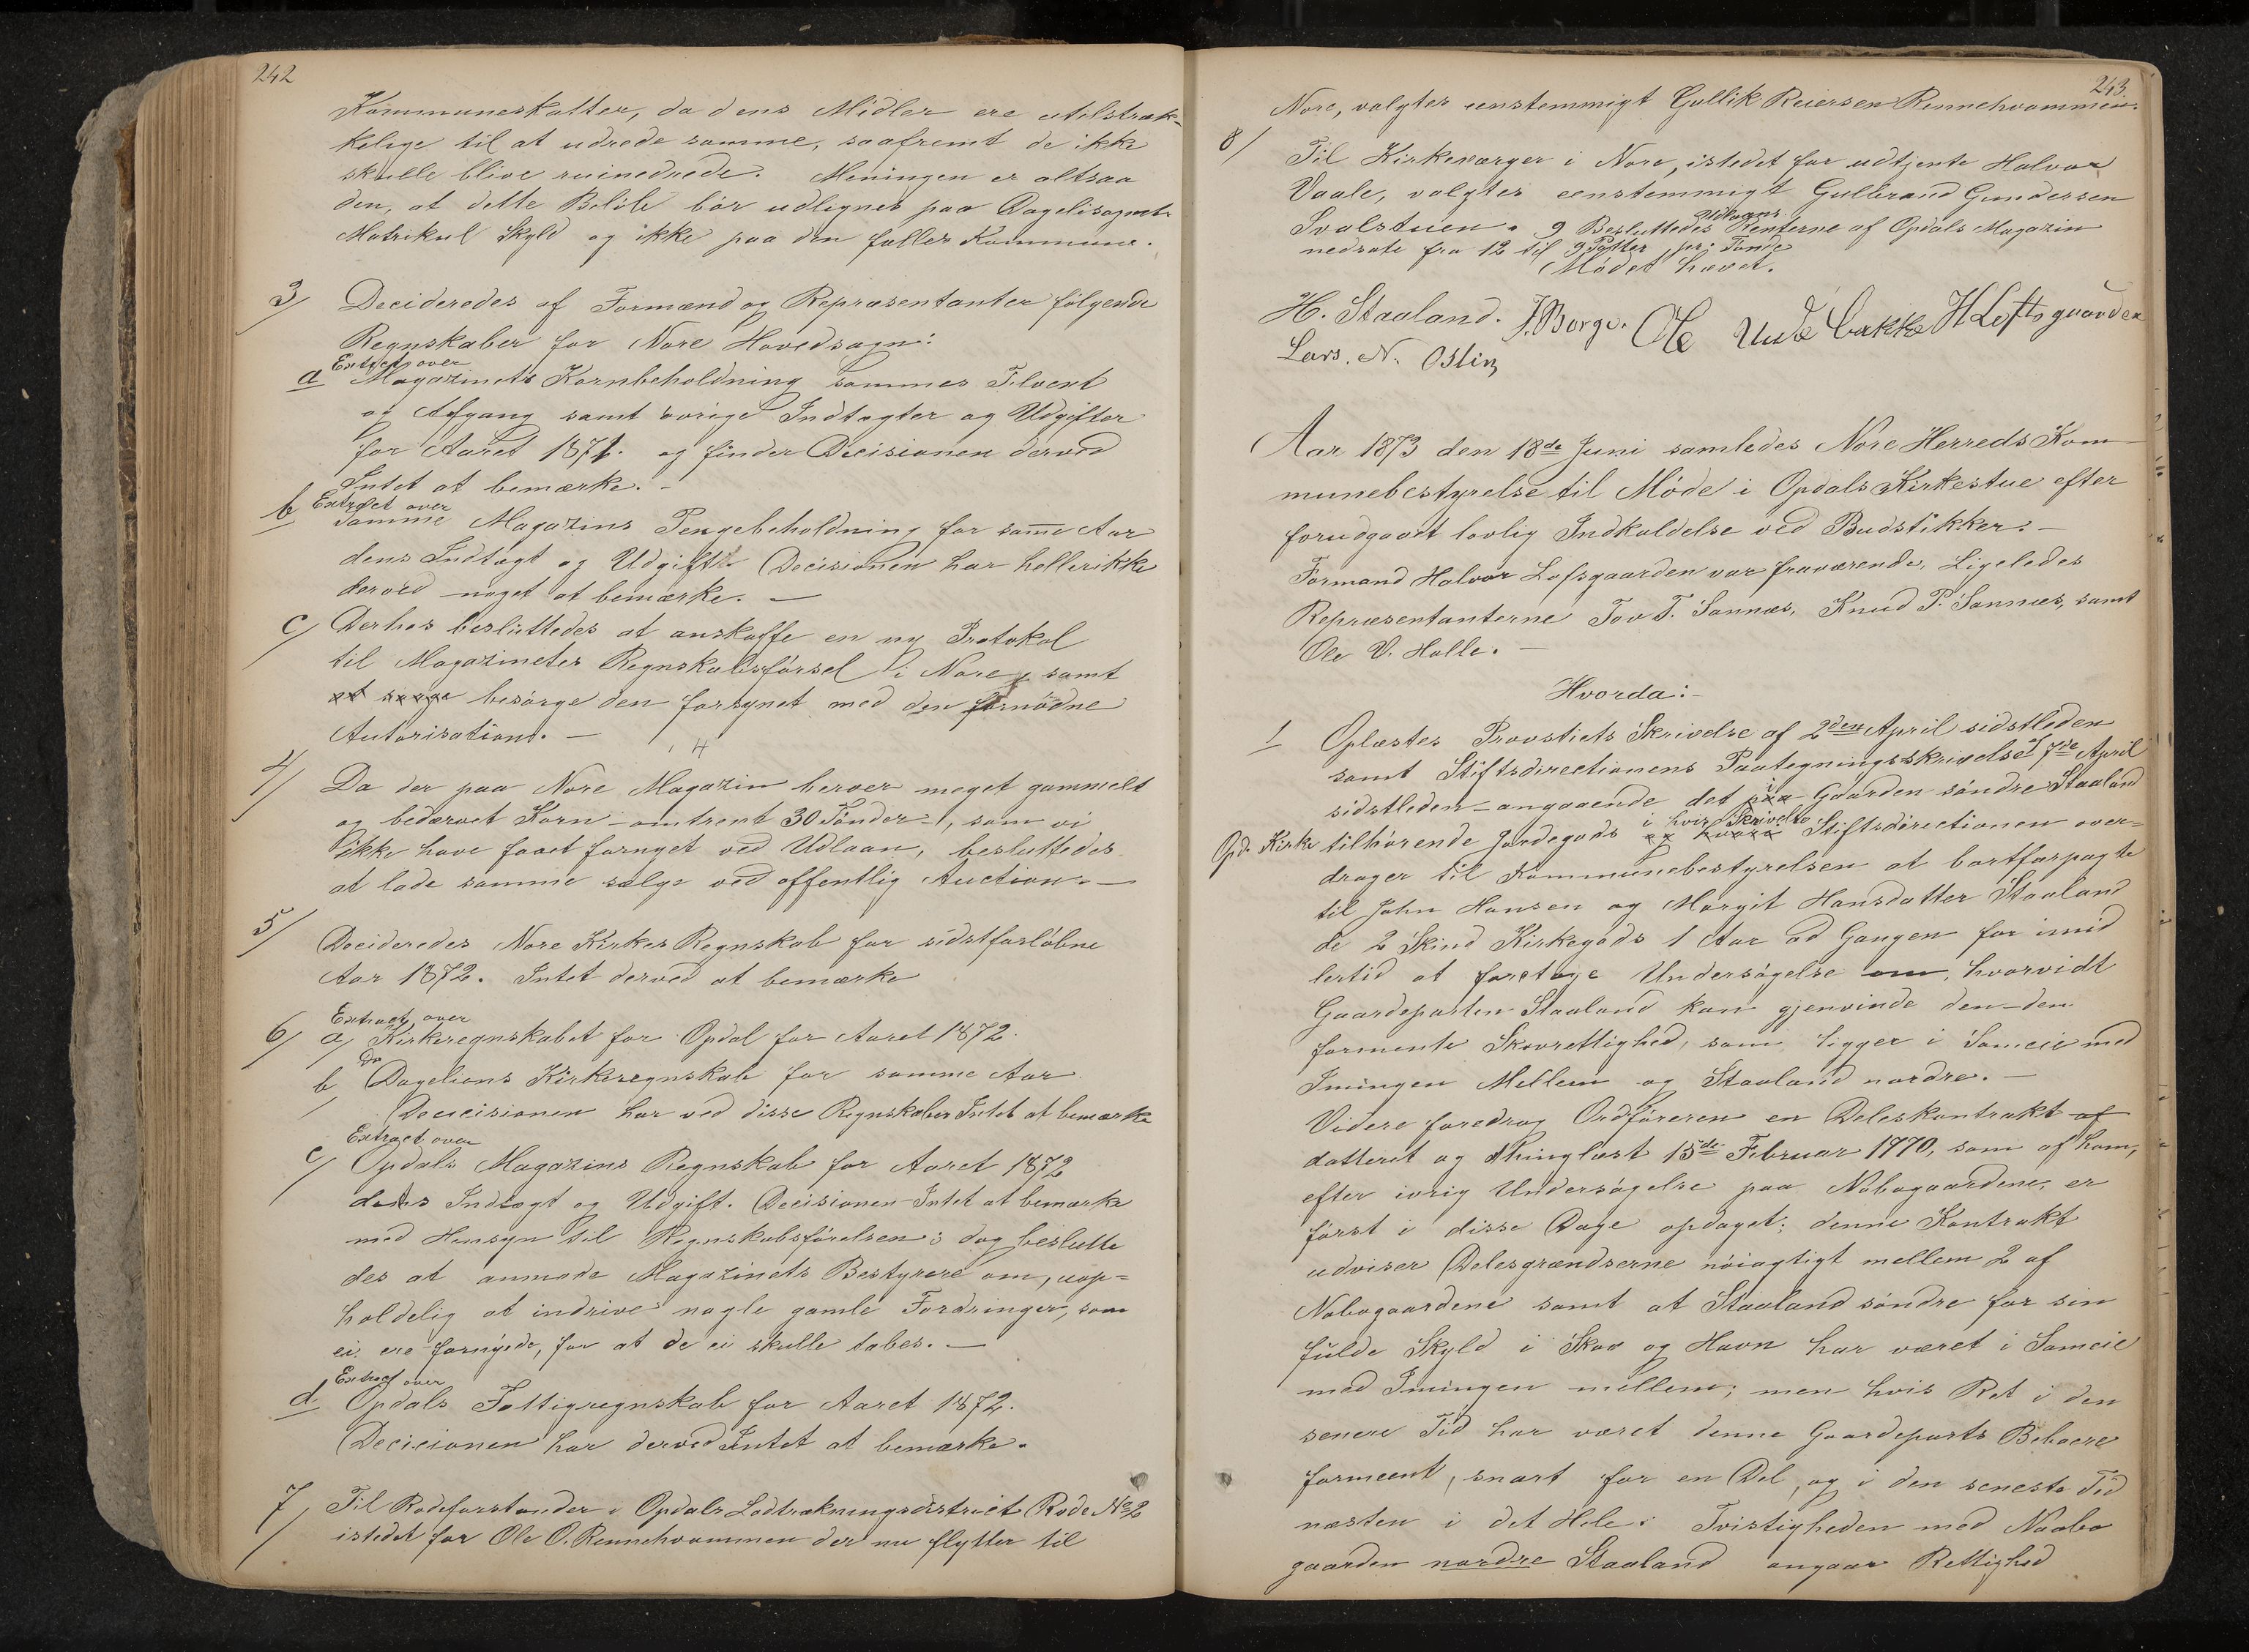 242
Kommuneskatter, da dens Midler ere utilstræk-
kelige til at udrede samme, saafremt de ikke
skulle blive ruinedrede. Meningen er altsaa
den, at dette Beløb bør udlignes paa Dagelisognets
Matrikul Skyld og ikke paa den fælles Kommune.
3/ Decideredes af Formænd og Repræsentanter følgende
Regnskaber for Nore Hovedsogn:
Extract over
a Magazinets Kornbeholdning sammes Tilvext
og Afgang samt øvrige Indtægter og Udgifter
for Aaret 1871. og finder Decisionen derved
Intet at bemærke. -
Extract over
b Samme Magazins Pengebeholdning for samme Aar
dens Indtægt og Udgift. Decisionen har heller ikke
derved noget at bemærke. —
c/ Derhos besluttedes at anskaffe en ny Protokol
til Magazinetes Regnskabsførsel i Nore, samt
at sørge besørge den forsynet med den fornødne
Autorisation. —
4/ Da der paa Nore Magazin beroer meget gammelt
og bedærvet Korn – omtrent 30 Tønder –, som vi
ikke have faaet fornyet ved Udlaan, besluttedes
at lade samme sælge ved offentlig Auction. —
5/ Decideredes Nore Kirkes Regnskab for sidstforløbne
Aar 1872. Intet derved at bemærke
Extract over
6/ a/ Kirkeregnskabet for Opdal for Aaret 1872.
Do
b Dageliens Kirkeregnskab for samme Aar
Decicisionen har ved disse Regnskaber Intet at bemærke
Extract over
c/ Opdals Magazins Regnskab for Aaret 1872
dets Indtægt og Udgift. Decisionen Intet at bemærke
med Hensyn til Regnskabsførelsen; dog beslutte
des at anmode Magazinets Bestyrere om, uop=
holdelig at indrive nogle gamle Fordringer, som
ei ere fornyede, for at de ei skulle tabes. —
Extract over
d Opdals Fattigregnskab for Aaret 1872.
Decicionen har derved Intet at bemærke.
7/ Til Rodeforstander i Opdals Lodtrækningsdistrict Rode No 2
istedet for Ole O. Rennehvammen der nu flytter til
243.
Nore, valgtes eenstemmigt Gullik Reiersen Rennehvammen.
8/ Til Kirkeværger i Nore, istedet for udtjente Halvor
Vaale, valgtes eenstemmigt Gulbrand Gundersen
Svalstuen. 9 Besluttedes Udlaans Renterne af Opdals Magazin
nedsate fra 12 til 9 Potter pr: Tønde
Mødet hævet.
H. Staaland. J. Borge. Ole Underbakke H Loftsgaarden
Lars. N. Oslin
Aar 1873 den 18de Juni samledes Nore Herreds Kom-
munebestyrelse til Møde i Opdals Kirkestue efter
forudgaaet lovlig Indkaldelse ved Budstikker. —
Formand Halvor Lofsgaarden var fraværende, Ligeledes
Repræsentanterne Tov T. Sønnæs, Knud P. Sønnæs, samt
Ole V. Halle. —
Hvorda:-
1 Oplæstes Provstiets Skrivelse af 2den April sidstleden
samt Stiftsdirectionens Paategningsskrivelse af 7de April
sidstleden – angaaende det paa i Gaarden søndre Staaland
Opd. Kirke tilhørende Jordegods i hvis Skrivelse Stiftsdirectionen over=
drager til Kommunebestyrelsen at bortforpagte
til John Hansen og Margit Hansdatter Staaland
de 2 Skind Kirkegods 1 Aar ad Gangen for imid
lertid at foretage Undersøgelse om, hvorvidt
Gaardeparten Staaland kan gjenvinde den – den
formente Skovrettighed, som ligger i Sameie med
Imingen Mellem og Staaland nordre. —
Videre foredrog Ordføreren en Deleskontrakt af
datteret og thinglæst 15de Februar 1770, som af ham,
efter ivrig Undersøgelse paa Nabogaardene, er
først i disse Dage opdaget; denne Kontrakt
udviser Delesgrændserne nøiagtigt mellem 2 af
Nabogaardene samt at Staaland søndre for sin
fulde Skyld i Skov og Havn har været i Sameie
med Imingen mellem; men hvis Ret i den
senere Tid har været denne Gaardeparts Beboere
formeent, snart for en Del, og i den seneste Tid
næsten i det Hele: Tvistigheden med Nabo
gaarden nordre Staaland angaar Rettighed